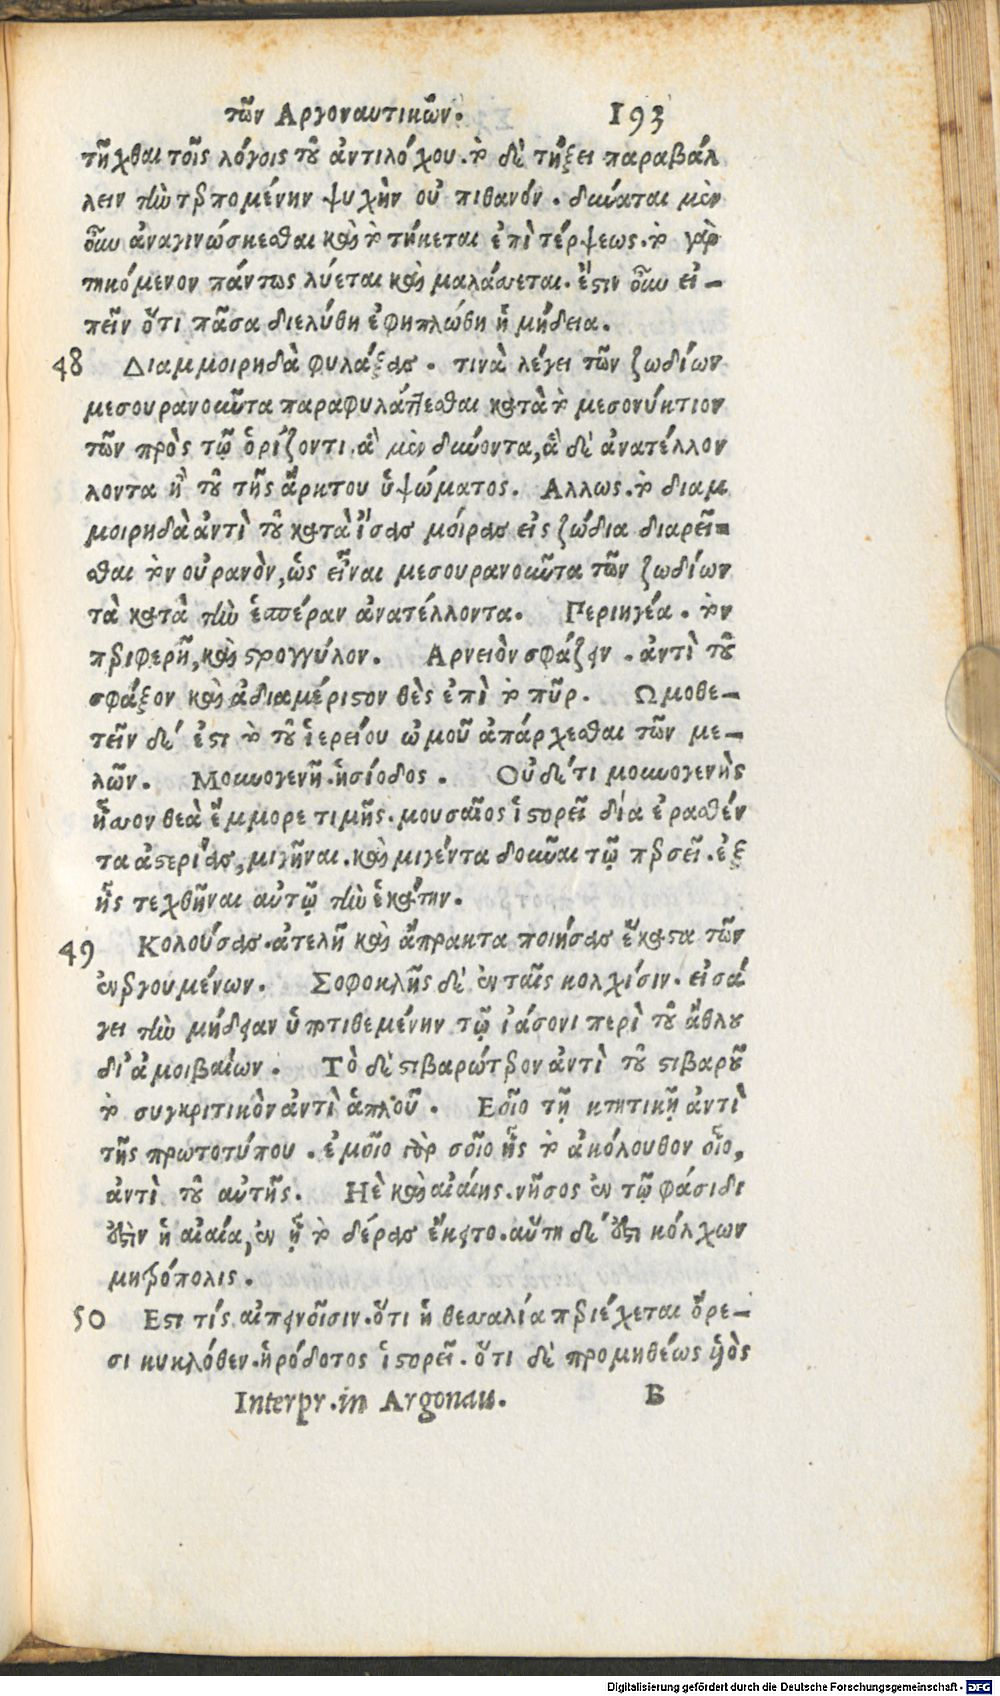 τῶν Ἀργοναυτικῶν. 193
τῆχθαι τοῖς λόγοις τοῦ ἀντιλόχου. τὸ δὲ τήξει παραβάλ
λειν τὴν τρεπομένην ψυχὴν οὐ πιθανόν. δύναται μὲν
οὖν ἀναγινώσκεσθαι καὶ τὸ τήκεται ἐπὶ τέρψεως. τὸ γὰρ
τηκόμενον πάντως λύεται καὶ μαλάσσεται. ἔστιν οὖν εἰ-
πεῖν ὅτι πᾶσα διελύθη ἐφηπλώθη ἡ μήδεια.
48 Διαμμοιρηδὰ φυλάξας. τινὰ λέγει τῶν ζωδίων
μεσουρανοῦντα παραφυλάττεσθαι κατὰ τὸ μεσονύκτιον
τῶν πρὸς τῷ ὁρίζοντι. ἃ μὲν δύνοντα, ἃ δὲ ἀνατέλλον
λοντα ἢ τοῦ τῆς ἄρκτου ὑψώματος. Αλλως. τὸ διαμ
μοιρηδὰ ἀντὶ τοῦ κατὰ ἴσας μοίρας εἰς ζώδια διαρεῖ=
σθαι τὸν οὐρανὸν, ὡς εἶναι μεσουρανοῦντα τῶν ζωδίων
τὰ κατὰ τὴν ἑσπέραν ἀνατέλλοντα. Περιηγέα. τὸν
περιφερῆ, καὶ στρογγύλον. Αρνειὸν σφάζειν. ἀντὶ τοῦ
σφάξον καὶ ἀδιαμέριστον θὲς ἐπὶ τὸ πῦρ. Ωμοθε-
τεῖν δέ ἐστι τὸ τοῦ ἱερείου ὠμοῦ ἀπάρχεσθαι τῶν με-
λῶν. Μουνογενῆ. ἡσίοδος. Οὐδέ τι μουνογενὴς
ἧσσον θεὰ ἔμμορε τιμῆς. μουσαῖος ἱστορεῖ δία ἐρασθέν
τα ἀστερίας, μιγῆναι. καὶ μιγέντα δοῦναι τῷ πέρσει. ἐξ
ἧς τεχθῆναι αὐτῷ τὴν ἑκάτην.
49 Κολούσας. ἀτελῆ καὶ ἄπρακτα ποιήσας ἕκαστα τῶν
ἐνεργουμένων. Σοφοκλῆς δὲ ἐν ταῖς κολχίσιν. εἰσά
γει τὴν μήδειαν ὑποτιθεμένην τῷ ἰάσονι περὶ τοῦ ἄθλου
δι' ἀμοιβαίων. Τὸ δὲ στιβαρώτερον ἀντὶ τοῦ στιβαροῦ
τὸ συγκριτικὸν ἀντὶ ἁπλοῦ. Εοῖο τῇ κτητικῇ ἀντὶ
τῆς πρωτοτύπου. ἐμοῖο γὰρ σοῖο ἧς τὸ ἀκόλουθον οἷο,
ἀντὶ τοῦ αὐτῆς. Ηὲ καὶ αἰαίης. νῆσος ἐν τῷ φάσιδι
ἐστὶν ἡ αἰαία, ἐν ᾗ τὸ δέρας ἔκειτο. αὕτη δέ ἐστι κόλχων
μητρόπολις.
50 Εστι τίς αἰπεινοῖσιν. ὅτι ἡ θεσσαλία περιέχεται ὄρε-
σι κυκλόθεν. ἡρόδοτος ἱστορεῖ. ὅτι δὲ προμηθέως ὑιὸς
Interpr. in Argonau. B
Digitalisierung gefördert durch die Deutsche Forschungsgemeinschaft - DFG